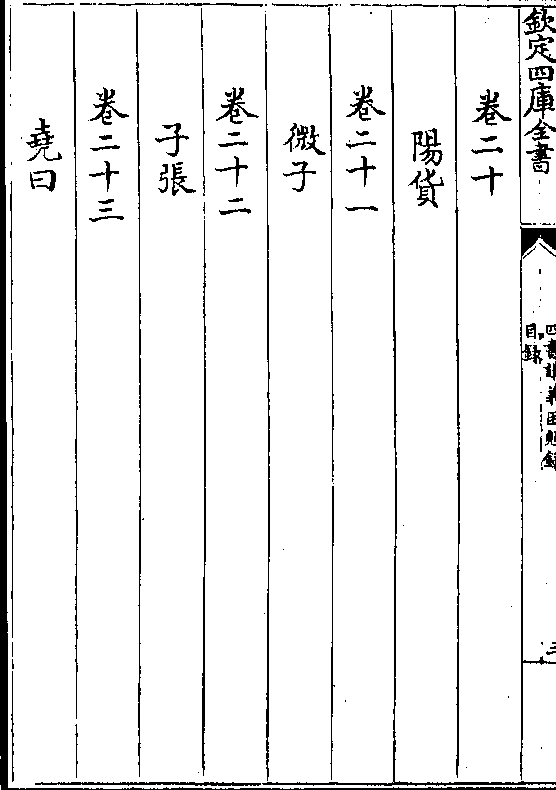 欽定四庫全書
四書講義困勉錄
目錄
三
卷二十
陽貨
卷二十一
微子
卷二十二
子張
卷二十三
堯曰